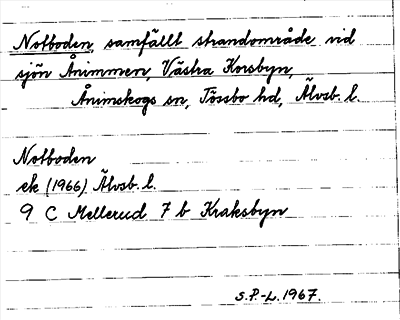 Notboden, samfällt strandområde vid
sjön Ånimmen, Västra Korsbyn,
Ånimskogs sn, Tössbo hd, Älvsb. l.
Notboden
ek (1966) Älvsb. l.
9 C Mellerud 7 b Kraksbyn
S.P.-L. 1967.